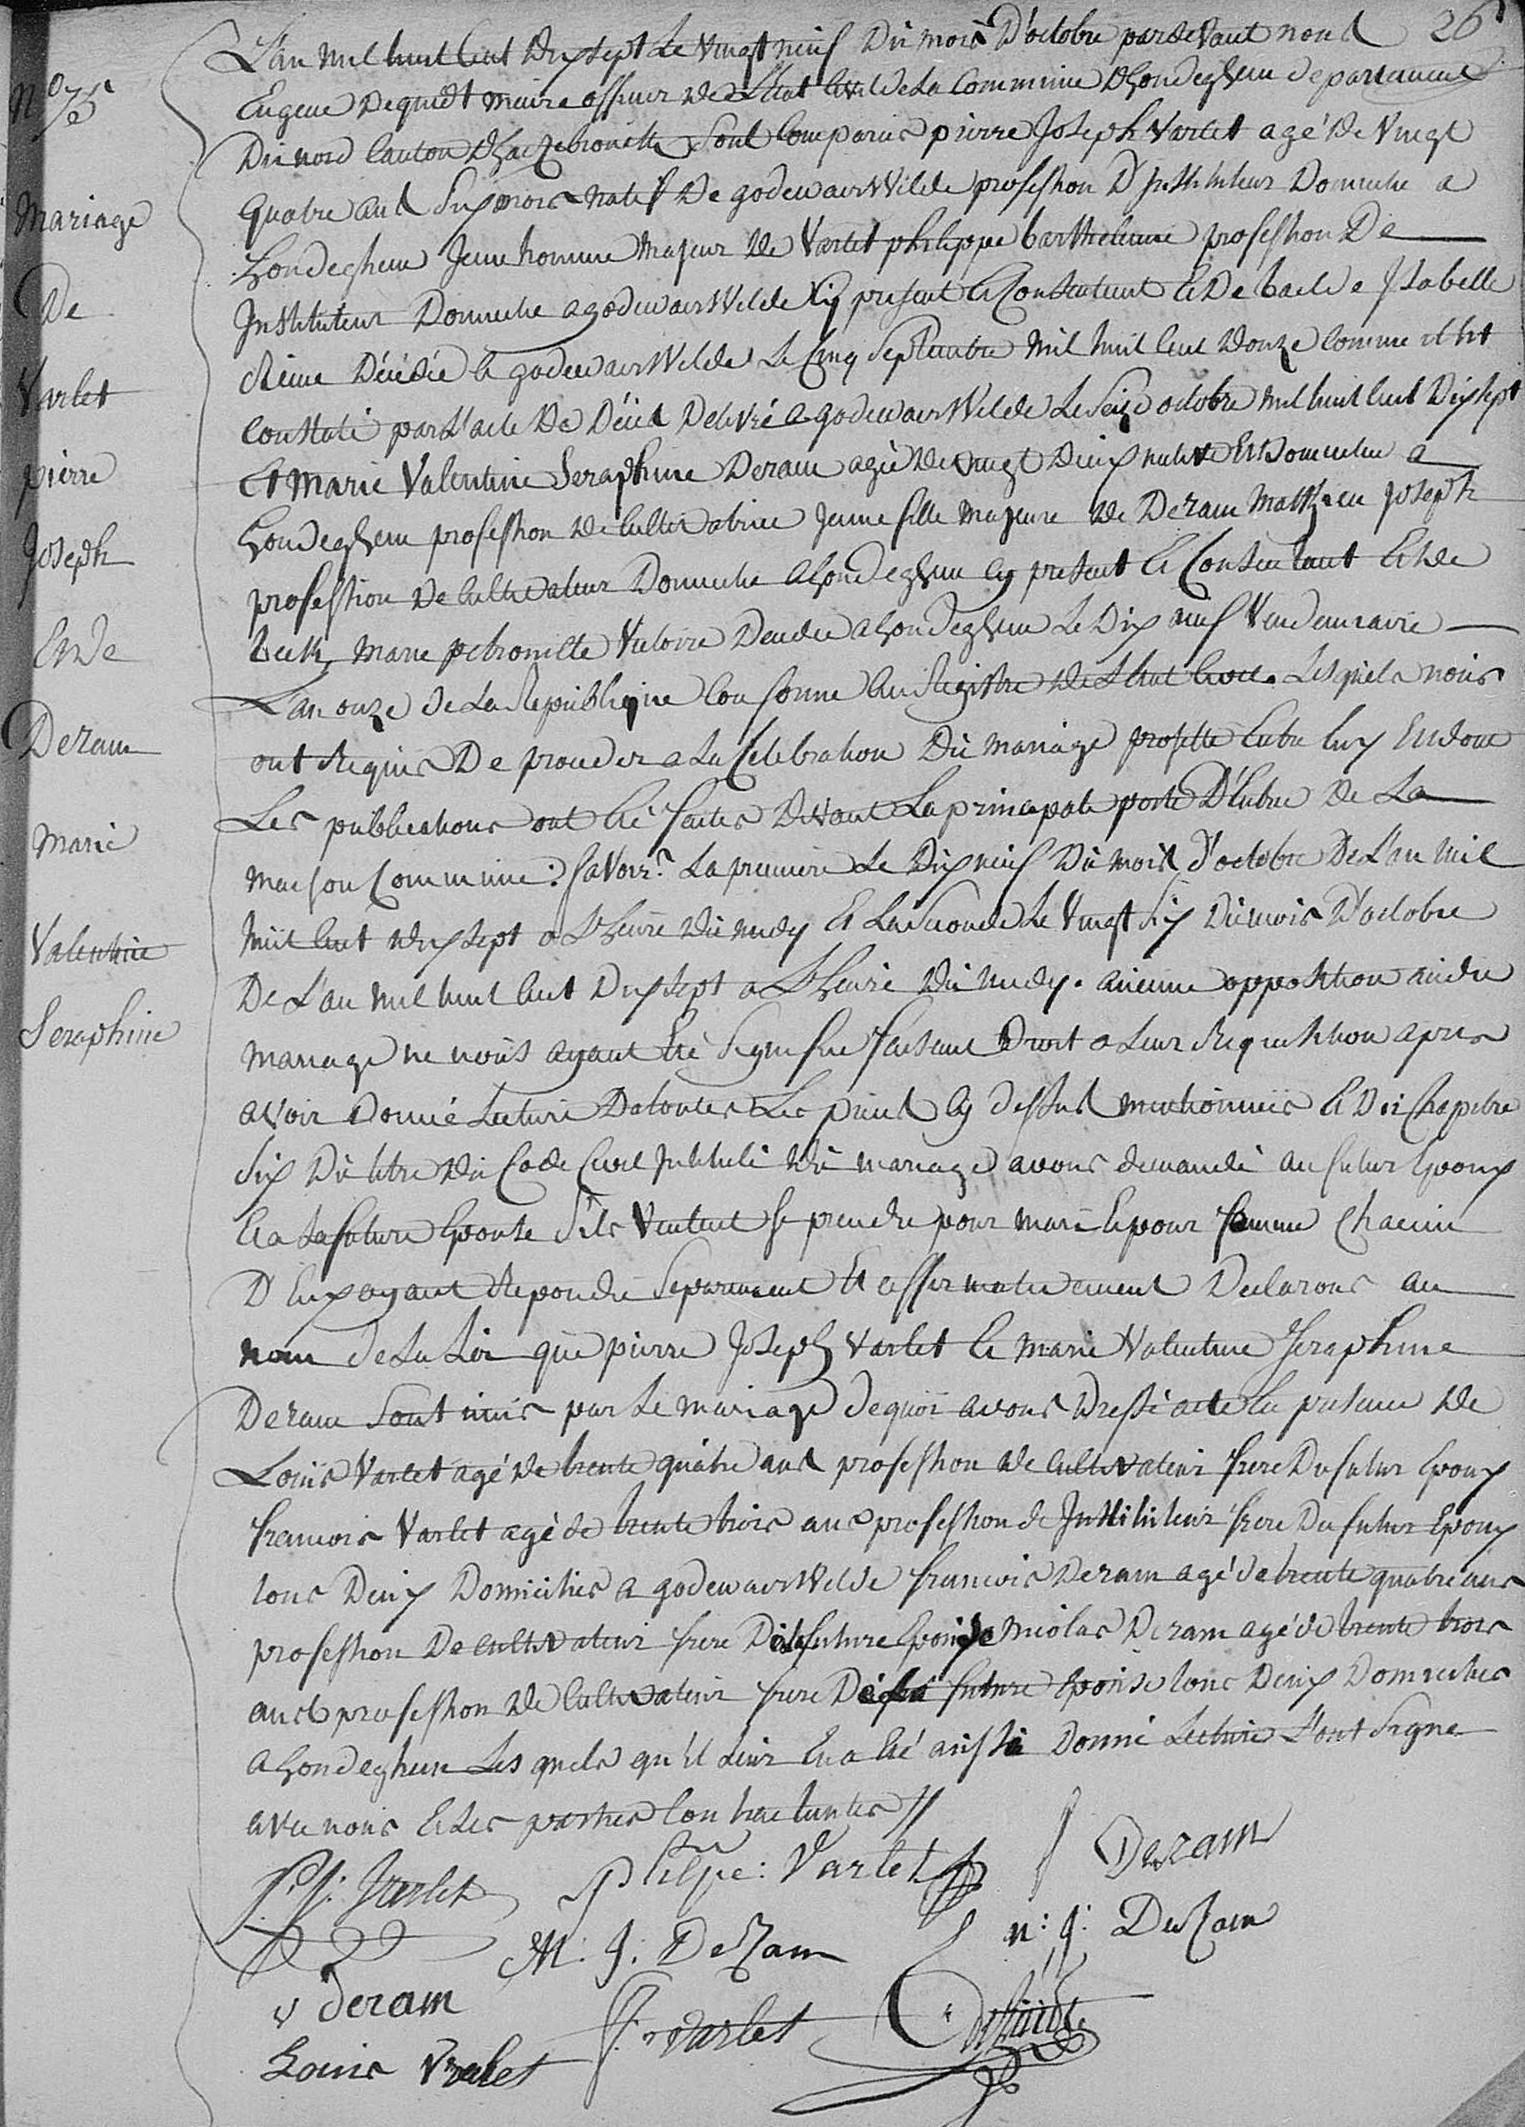 26
N° 75
Mariage
De
Varlet
pierre
Joseph
Et De
Deram
Marie
Valentine
Seraphine
L'an mil huit Cent Dix sept Le Vingt neuf Du mois D'octobre par devant nous
Eugene Dequidt maire officier De L'Etat Civil de La Commune D'hondeghem departement
Du nord Canton D'hazebrouck Sont Comparus pierre Joseph Varlet agé De Vingt
quatre ans Six mois natif De godewaersvelde profession D'Instituteur Domicilié a
hondeghem Jeune homme Majeur De Varlet philippe barthelemie profession De
Instituteur Domicilié a godewaersvelde Cy present et Consentant Et De Isabelle
Décédée a godewaersvelde Le Cinq Septembre Mil huit Cent Douze Comme il Est
Constaté par L'acte De Décès Delivré a godewaersvelde Le Seize octobre mil huit Cent Dix sept
Et Marie Valentine Seraphine Deram agée De Vingt Deux native Et Domiciliée a
hondeghem profession De Cultivatrice Jeune fille Majeure De Deram Mathieu Joseph
profession De Cultivateur Domicilié a hondeghem Cy present Et Consentant Et De
Marie petronille Victoire Decedée a hondeghem Le Dix neuf Vendemiaire
L'an onze de La Republique Conforme au Registre De L'Etat Civil. Lesquels nous
ont Requis De proceder a La Celebration Du mariage projetté Entre Eux Et dont
Les publications ont Eté faites Devant La principale porte D'Entrée De La
maison Commune: Savoir: La premiere Le Dix neuf Du mois d'octobre De L'an Mil
huit Cent Dix sept a L'heure Du midy Et La Seconde Le Vingt Six Du mois D'octobre
De L'an Mil huit Cent Dix sept a L'heure Du midy. aucune opposition audit
mariage ne nous ayant Eté Signifiée faisant Droit a Leur Requisition apres
avoir Donné Lecture De toutes Les pieces Cy dessus mentionnées Et Du Chapitre
Six Du titre Du Code Civil Intitulé Du mariage avons demandé au futur Epoux
Et a La future Epouse S'ils Veulent Se prendre pour mari Et pour femme Chacun
D'Eux ayant Repondu Separement Et affirmativement Declarons au
nom de La Loi que pierre Joseph Varlet Et Marie Valentine Seraphine
Deram Sont unis par Le mariage de quoi avons Dressé acte En presence De
Louis Varlet agé De trente quatre ans profession De Cultivateur frere Du futur Epoux
francois Varlet agé de trente trois ans profession de Instituteur frere Du futur Epoux
tous Deux Domiciliés a godewaersvelde francois Deram agé de trente quatre ans
profession De Cultivateur frere De la future Epouse Nicolas Deram agé de trente trois
ans profession De Cultivateur frere De la future Epouse tous Deux Domiciliés
a hondeghem Les quels qu'il Leur En a Eté aussi Donné Lecture L'ont Signé
avec nous Et Les parties Contractantes //
P. J. Varlet
Philipe: Varlet
Deram
M: J: Deram
n: J: Deram
Deram
F: Varlet
Dequidt
Louis Varlet